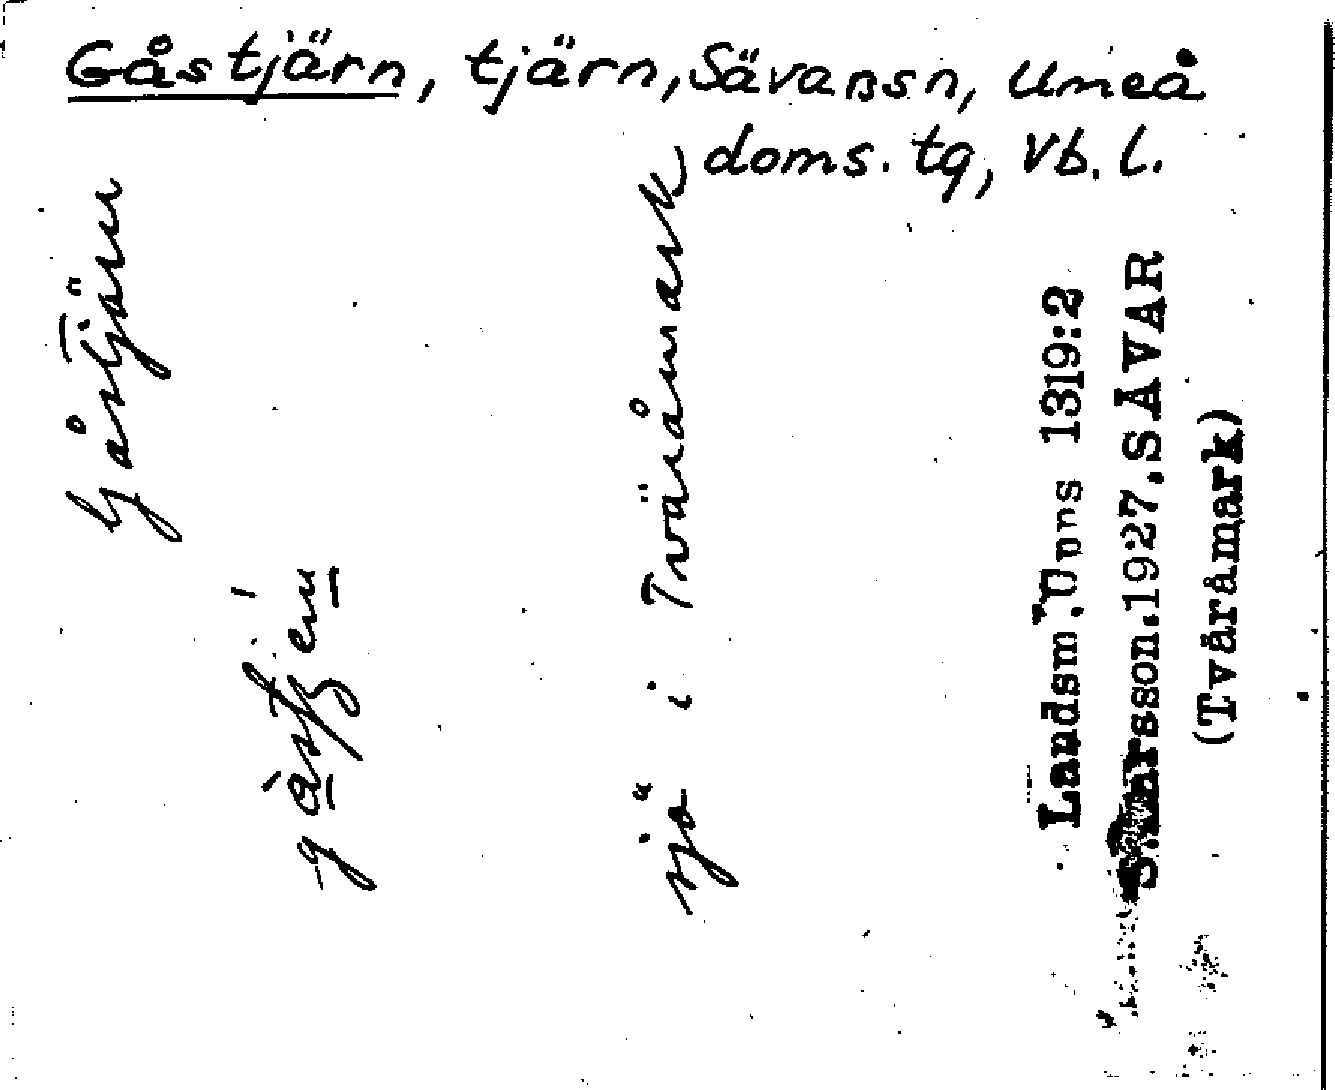 Gåstjärn, tjärn, Sävar sn, Umeå
doms. tg, Vb. l.
Gåstjärn
sjö i Tväråmark
Landsm. Upps 1319:2
S. Larsson. 1927. SÄVAR
(Tväråmark)